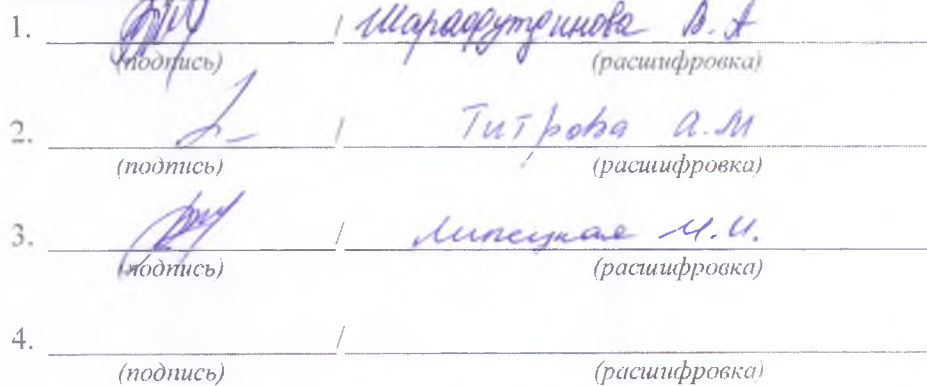 1. / Шарафутдинова В. А
(подпись) (расшифровка)
2. / Титрова А.М
(подпись) (расшифровка)
3. / Липецкая М.И.
(подпись) (расшифровка)
4. /
(подпись) (расшифровка)